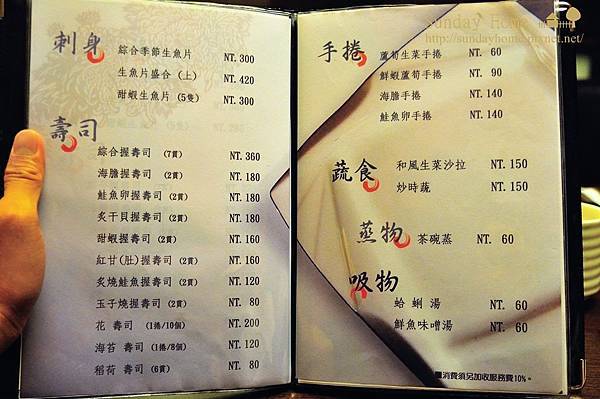 Sunday Home
http://sundayhome.pixnet.net/
刺身
綜合季節生魚片 NT. 300
生魚片盛合 (上) NT. 420
甜蝦生魚片 (5隻) NT. 300
壽司
綜合握壽司 (7貫) NT. 360
海膽握壽司 (2貫) NT. 180
鮭魚卵握壽司 (2貫) NT. 180
炙干貝握壽司 (2貫) NT. 180
甜蝦握壽司 (2貫) NT. 160
紅甘(肚)握壽司 (2貫) NT. 160
炙燒鮭魚握壽司 (2貫) NT. 120
玉子燒握壽司 (2貫) NT. 80
花 壽司 (1捲/10個) NT. 200
海苔 壽司 (1捲/8個) NT. 120
稻荷 壽司 (6貫) NT. 80
手捲
蘆筍生菜手捲 NT. 60
鮮蝦蘆筍手捲 NT. 90
海膽手捲 NT. 140
鮭魚卵手捲 NT. 140
蔬食
和風生菜沙拉 NT. 150
炒時蔬 NT. 150
蒸物
茶碗蒸 NT. 60
吸物
蛤蜊湯 NT. 60
鮮魚味噌湯 NT. 60
消費須另加收服務費10%。